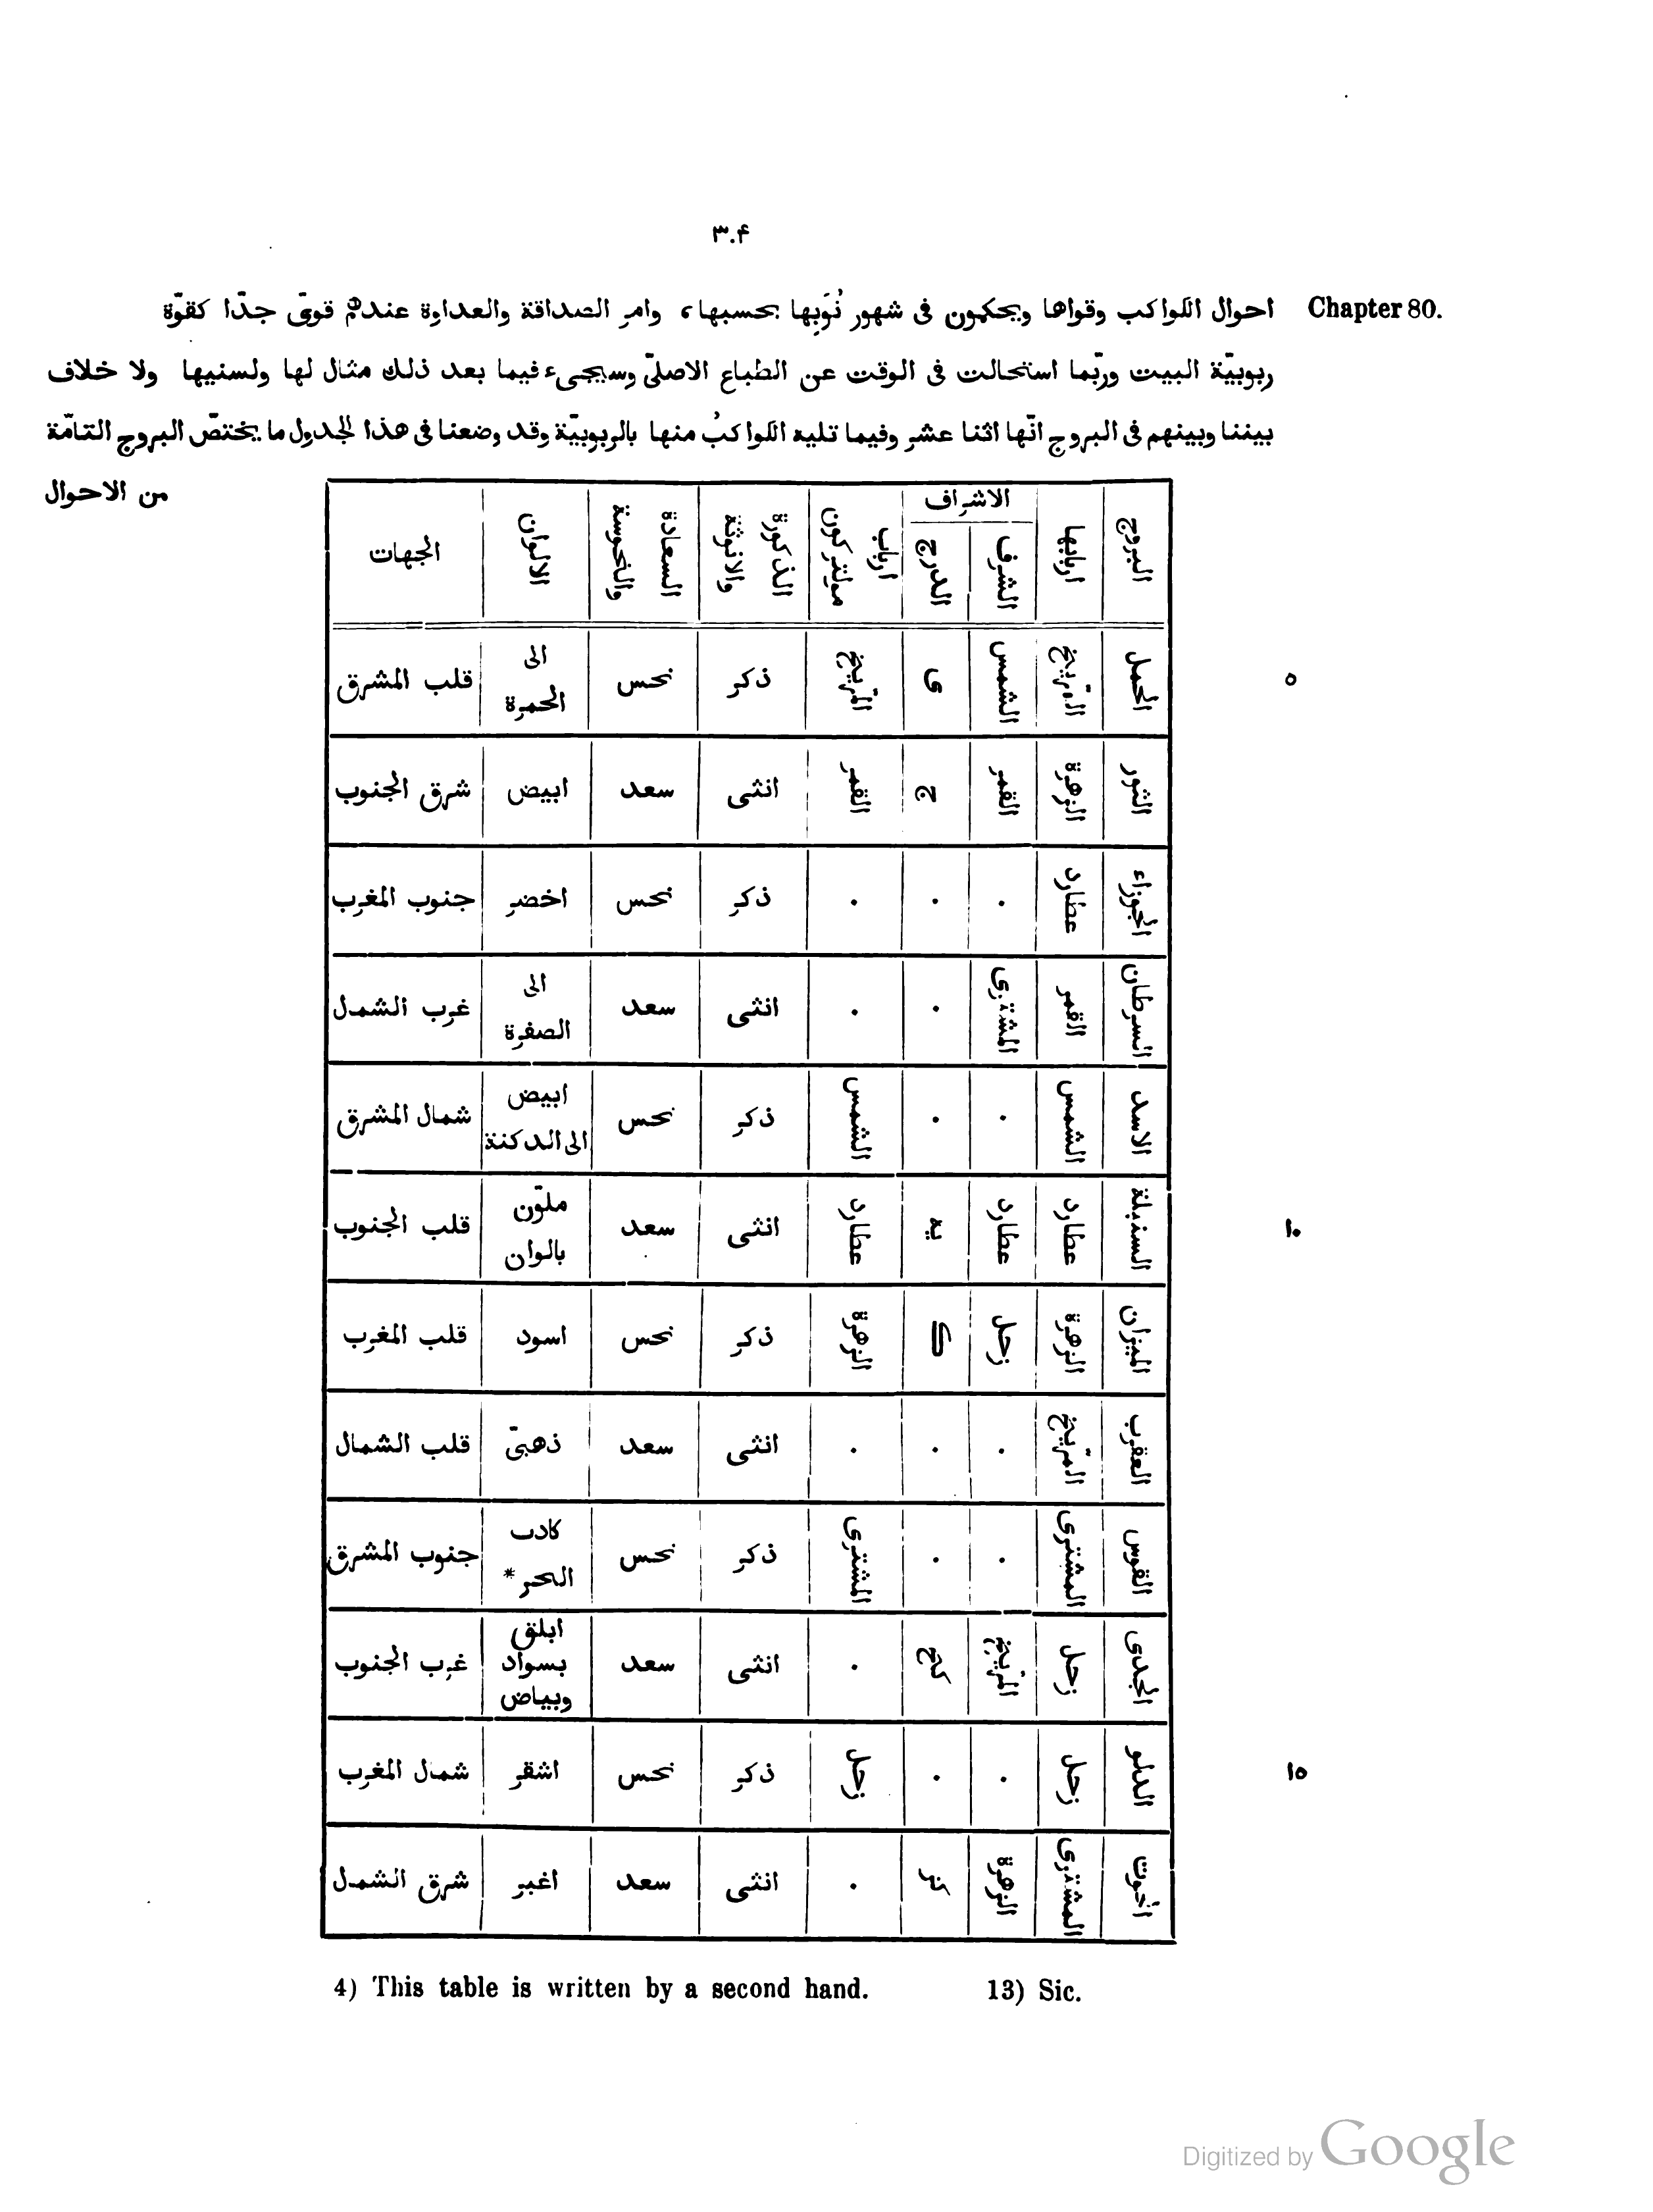 ٣٠۴
Chapter 80. احوال الكواكب وقواها ويحكمون فى شهور نُوَبِها بحسبها، وامر الصداقة والعداوة عندهم قوىّ جدّا كقوّة
ربوبيّة البيت وربّما استحالت فى الوقت عن الطباع الاصلىّ وسيجىء فيما بعد ذلك مثال لها ولسنيها ولا خلاف
بيننا وبينهم فى البروج انّها اثنا عشر وفيما تليه الكواكبُ منها بالربوبيّة وقد وضعنا فى هذا الجدول ما يختصّ البروج التامّة
من الاحوال
البروج | اربابها | الاشراف: الشرف | الدرج | ارباب مولتركون | الذكورة والانوثة | السعادة والنحوسة | الالوان | الجهات
٥ الحمل | المرّيخ | الشمس | ى | المرّيخ | ذكر | نحس | الى الحمرة | قلب المشرق
الثور | الزهرة | القمر | ج | القمر | انثى | سعد | ابيض | شرق الجنوب
الجوزاء | عطارد | ٠ | ٠ | ٠ | ذكر | نحس | اخضر | جنوب المغرب
السرطان | القمر | المشترى | ٠ | ٠ | انثى | سعد | الى الصفرة | غرب الشمال
الاسد | الشمس | ٠ | ٠ | الشمس | ذكر | نحس | ابيض الى الدكنة | شمال المشرق
١٠ السنبلة | عطارد | عطارد | يه | عطارد | انثى | سعد | ملوّن بالوان | قلب الجنوب
الميزان | الزهرة | زحل | ك | الزهرة | ذكر | نحس | اسود | قلب المغرب
العقرب | المرّيخ | ٠ | ٠ | ٠ | انثى | سعد | ذهبىّ | قلب الشمال
القوس | المشترى | ٠ | ٠ | المشترى | ذكر | نحس | كادب البحر* | جنوب المشرق
الجدى | زحل | المرّيخ | كح | ٠ | انثى | سعد | ابلق بسواد وبياض | غرب الجنوب
١٥ الدلو | زحل | ٠ | ٠ | زحل | ذكر | نحس | اشقر | شمال المغرب
الحوت | المشترى | الزهرة | كز | ٠ | انثى | سعد | اغبر | شرق الشمال
4) This table is written by a second hand. 13) Sic.
Digitized by Google